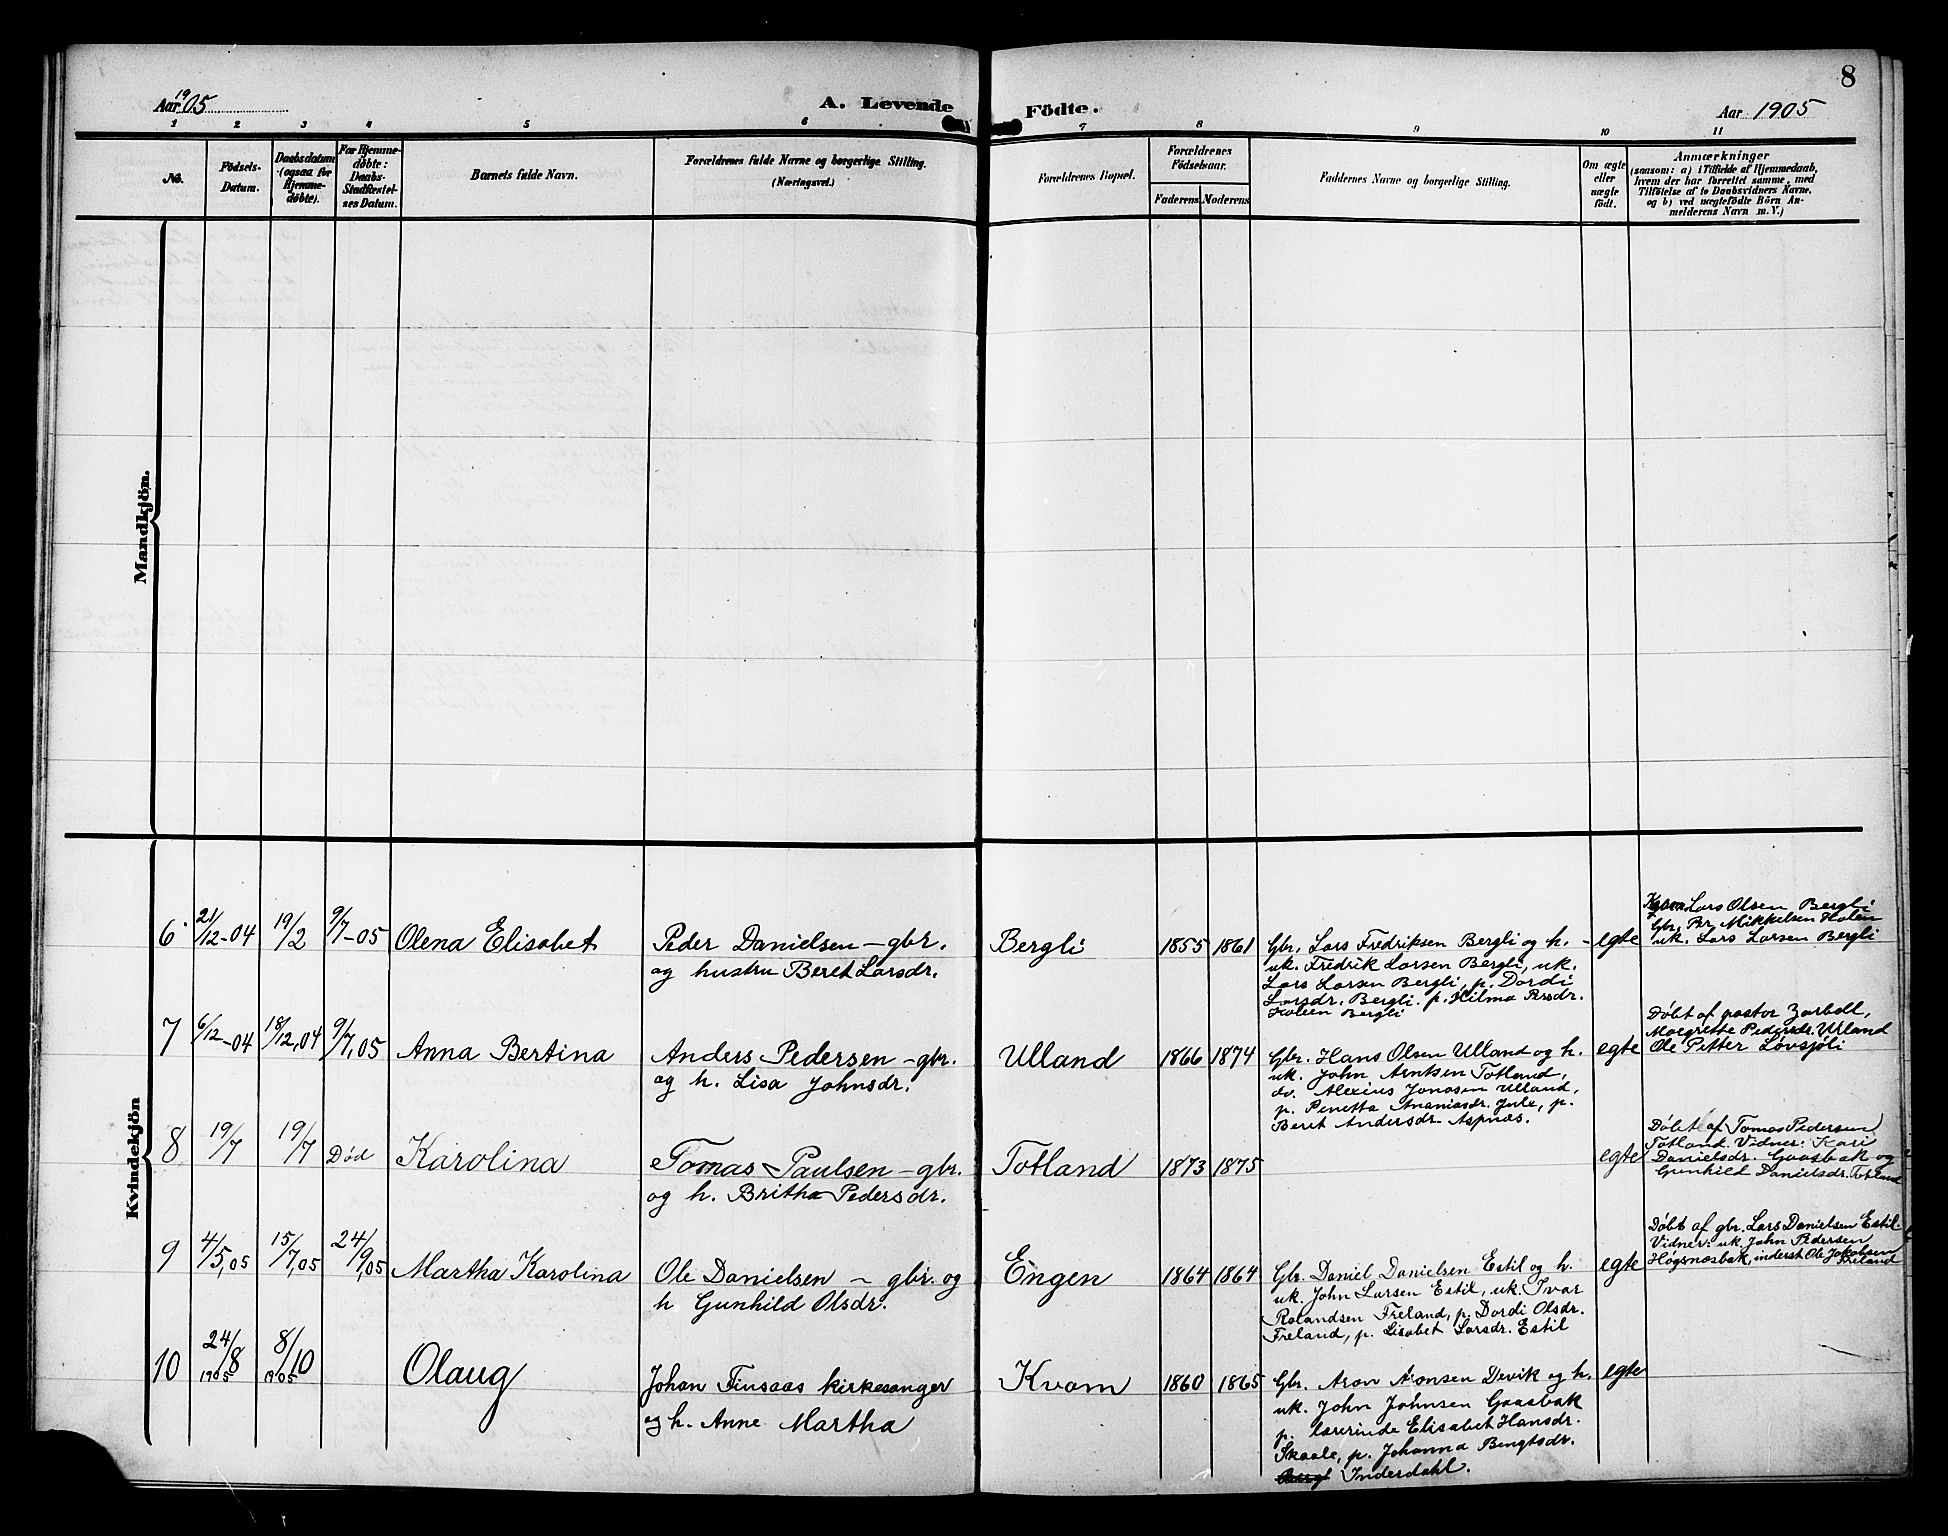 8
Aar 1905
A. Levende
Födte.
Aar 1905
1 2 3 4 5 6 7 8 9 10 11
No.
Födsels-
Datum.
Daabsdatum
(ogsaa for
Hjemme-
döbte).
For Hjemme-
döbte:
Daabs-
Stadfæstel-
ses Datum.
Barnets fulde Navn.
Forældrenes fulde Navne og borgerlige Stilling.
(Næringsvei.)
Forældrenes Bopæl.
Forældrenes
Födselsaar.
Faderens
Moderens
Faddernes Navne og borgerlige Stilling.
Om ægte
eller
uægte
født.
Anmærkninger
(saasom: a) i Tilfælde af Hjemmedaab,
hvem der har forrettet samme, med
Tilföielse af to Daabsvidners Navne,
og b) ved uægtefödte Börn An-
melderens Navn m. V.)
Mandkjön.
Kvindekjön
6
21/12-04
19/2
9/7-05
Olena Elisabet
Peder Danielsen - gbr.
og hustru Beret Larsdr.
Bergli
1855
1861
Gbr. Lars Fredriksen Bergli og h. -
uk. Fredrik Larsen Bergli, uk.
Lars Larsen Bergli, p. Dordi
Larsdr. Bergli. p. Hilma Persdr.
Holien Bergli
egte
Lars Olsen Bergli
Gbr. Per Mikkelsen Holen
uk. Lars Larsen Bergli
7
6/12-04
18/12,04
9/7,05
Anna Bertina
Anders Pedersen - gbr.
og h. Lisa Johnsdr.
Ulland
1866
1874
Gbr. Hans Olsen Ulland og h.
uk. John Arntsen Totland,
do. Alexius Jonasen Ulland,
p. Penetta Ananiasdr. Jule, p.
Beret Andersdr. Aspnæs.
egte
Døbt af pastor Zarbell,
Margrette Pedersdr. Urland
Ole Petter Løvsjøli
8
19/7
19/7
Død
Karolina
Tomas Paulsen - gbr.
og h. Britha Pedersdr.
Totland
1873
1875
egte
Døbt af Tomas Pedersen
Totland. Vidner: Kari
Danielsdr. Gaasbak og
Gunhild Danielsdr. Totland
9
4/5,05
15/7,05
24/9,05
Martha Karolina
Ole Danielsen - gbr. og
h Gunhild Olsdr.
Engen
1864
1864
Gbr. Daniel Danielsen Estil og h.
uk. John Larsen Estil, uk. Ivar
Rolandsen Freland, p. Dordi Olsdr.
Freland, p. Lisabet Larsdr. Estil
egte
Døbt af gbr. Lars Danielsen Estil.
Vidner: uk. John Pedersen
Høgsnæsbak, inderst Ole Jakobsen
Freland
10
24/8
1905
8/10
1905
Olaug
Johan Finsaas kirkesanger
og h. Anne Martha
Kvam
1860
1865
Gbr. Aron Aronsen Devik og h.
uk. John Johnsen Gaasbak
p. lærerinde Elisabet Hansdr.
Skaale, p. Johanna Bengtsdr.
Inderdahl.
egte